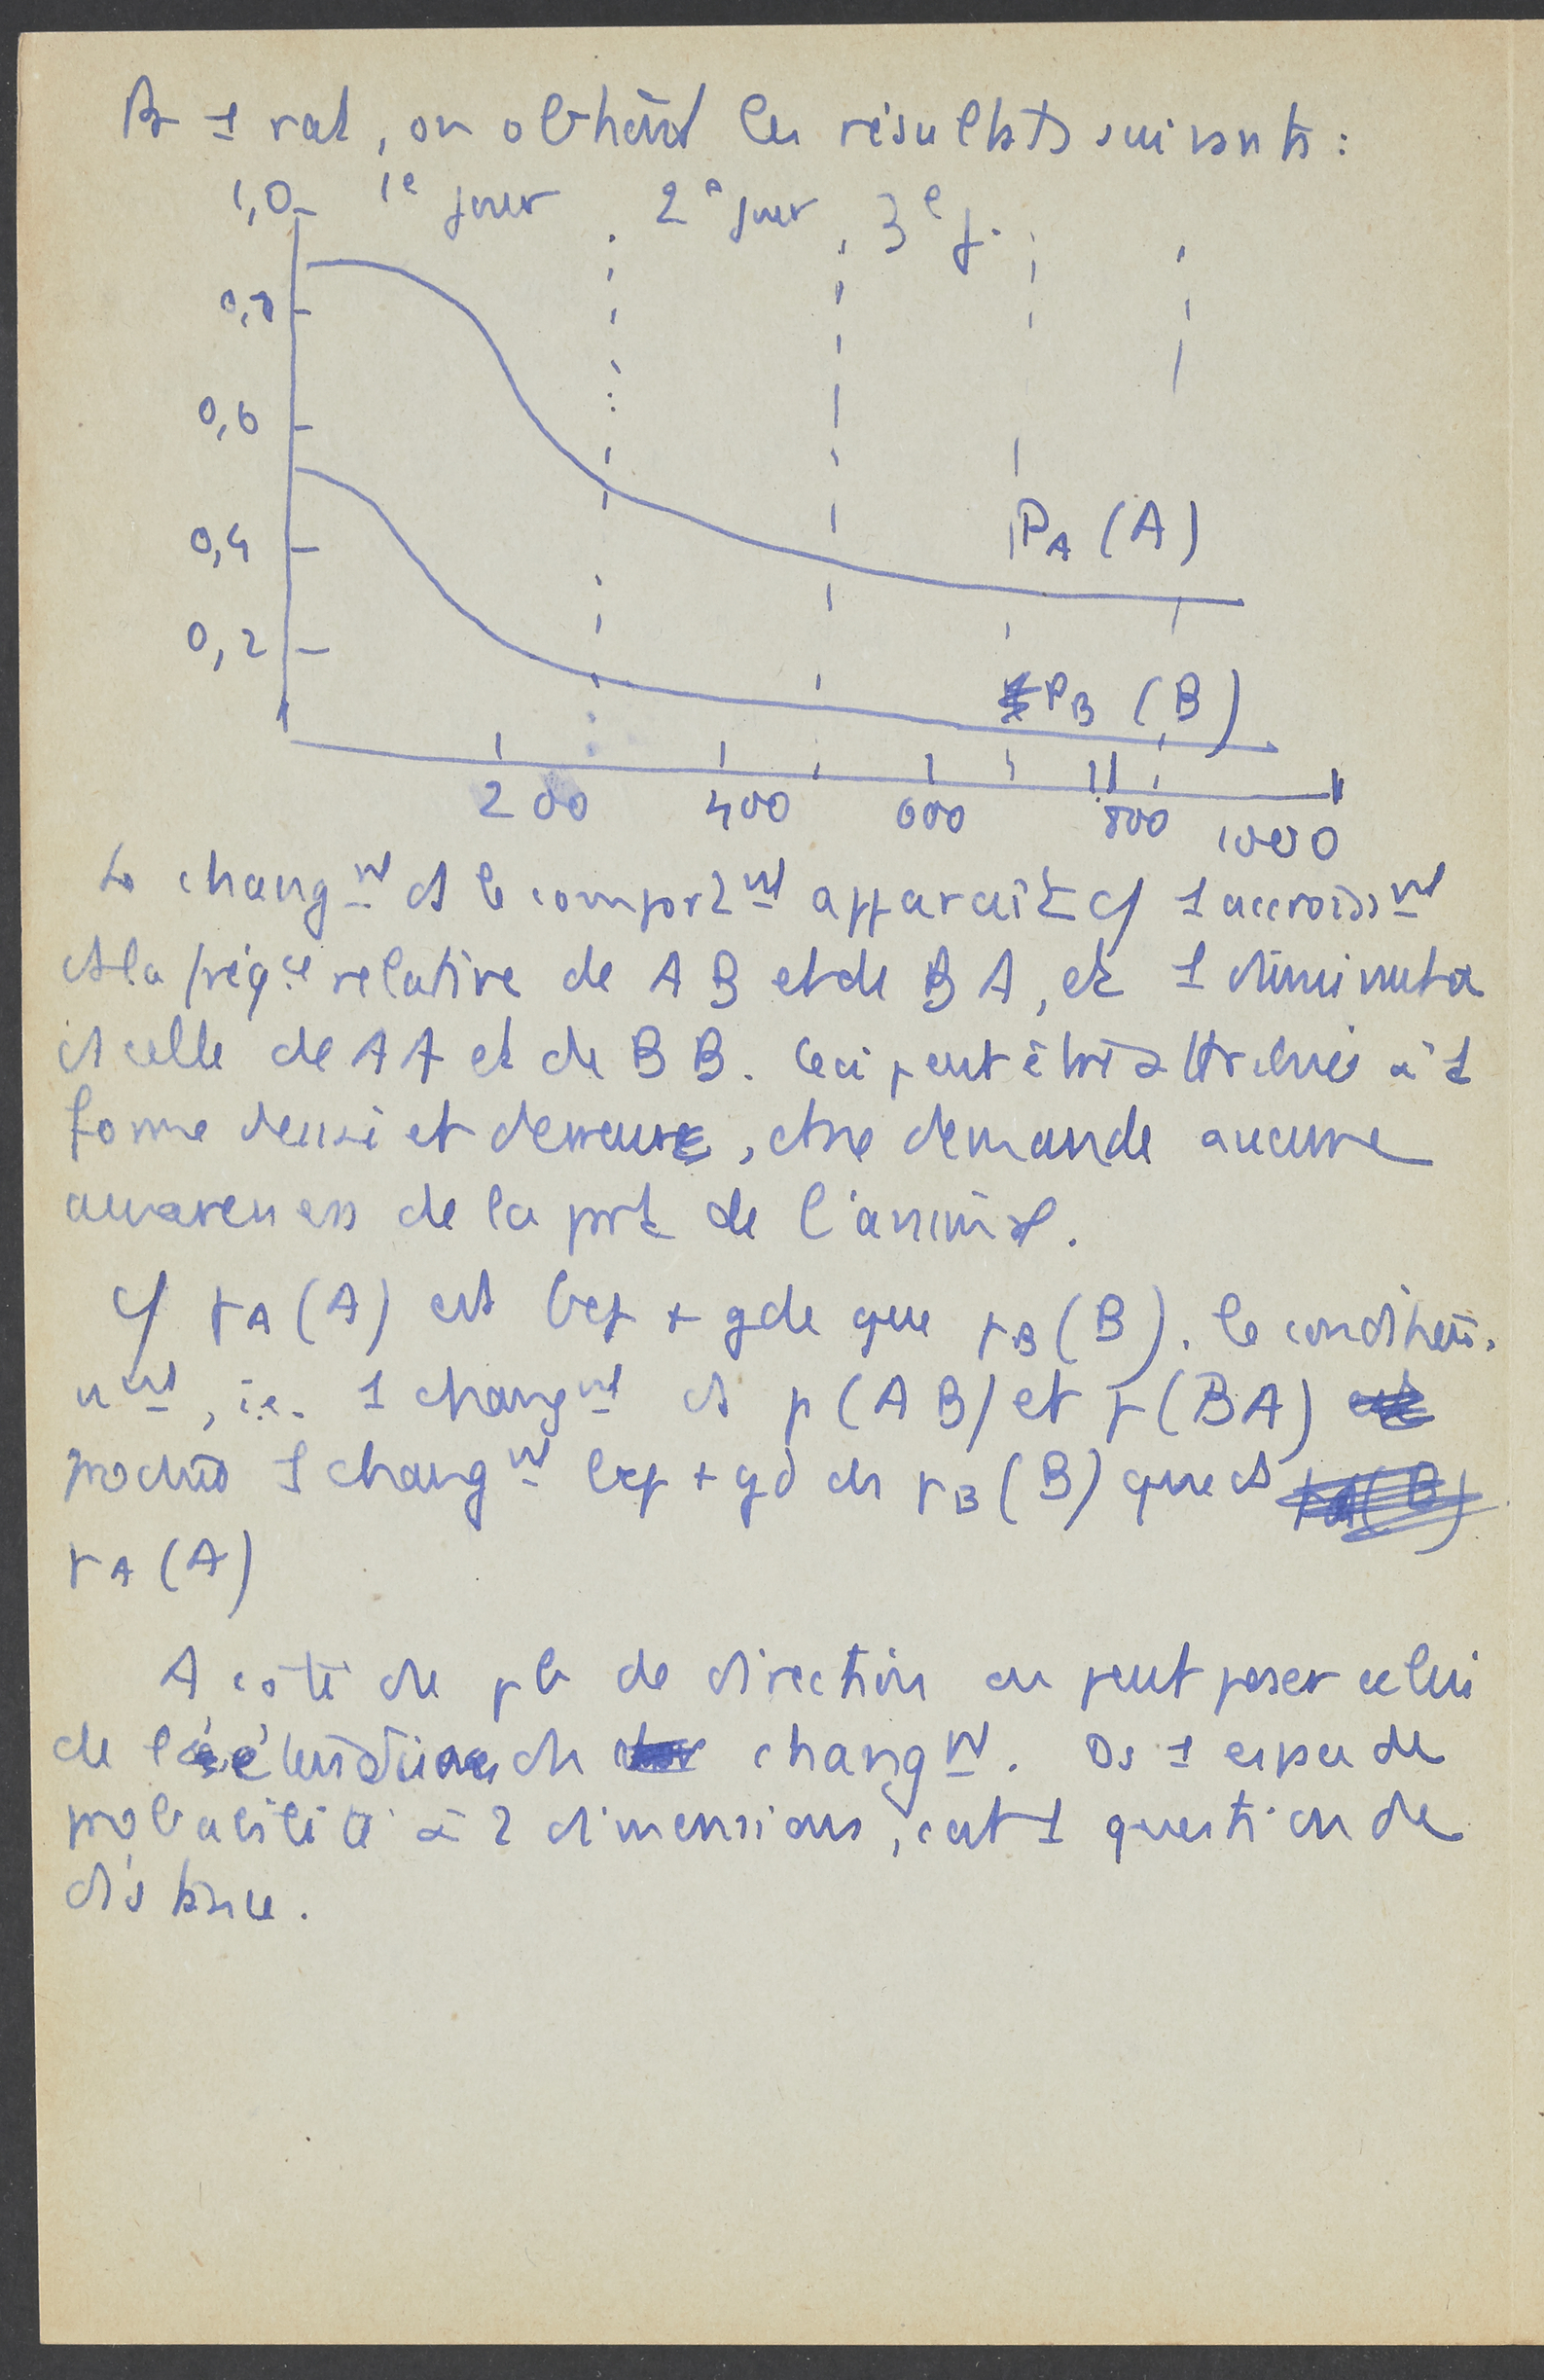 Ps 1 rat, on obtient les résultats suivants :
1,0 1e jour 2e jour 3e j.
0,8
0,6
0,4
0,2
PA (A)
PB (B)
200 400 600 800 1000
Le changnt ds le comportnt apparaît cf 1 accroissnt
ds la fréqce relative de AB et de BA, et 1 diminuta
ds celle de AA et de BB. Ceci peut être attribué à 1
forme et , demande aucune
awareness de la part de l'animal.
cf pA (A) est bcp + gde que pB (B). le condition-
nnt, i.e. 1 changnt ds p(AB) et p(BA)
produit 1 changnt bcp + gd ds pB (B) que ds
pA (A)
A côté du pb de direction on peut poser celui
de du changnt. Ds 1 espace de
probabilité à 2 dimensions, c'est 1 question de
distance.